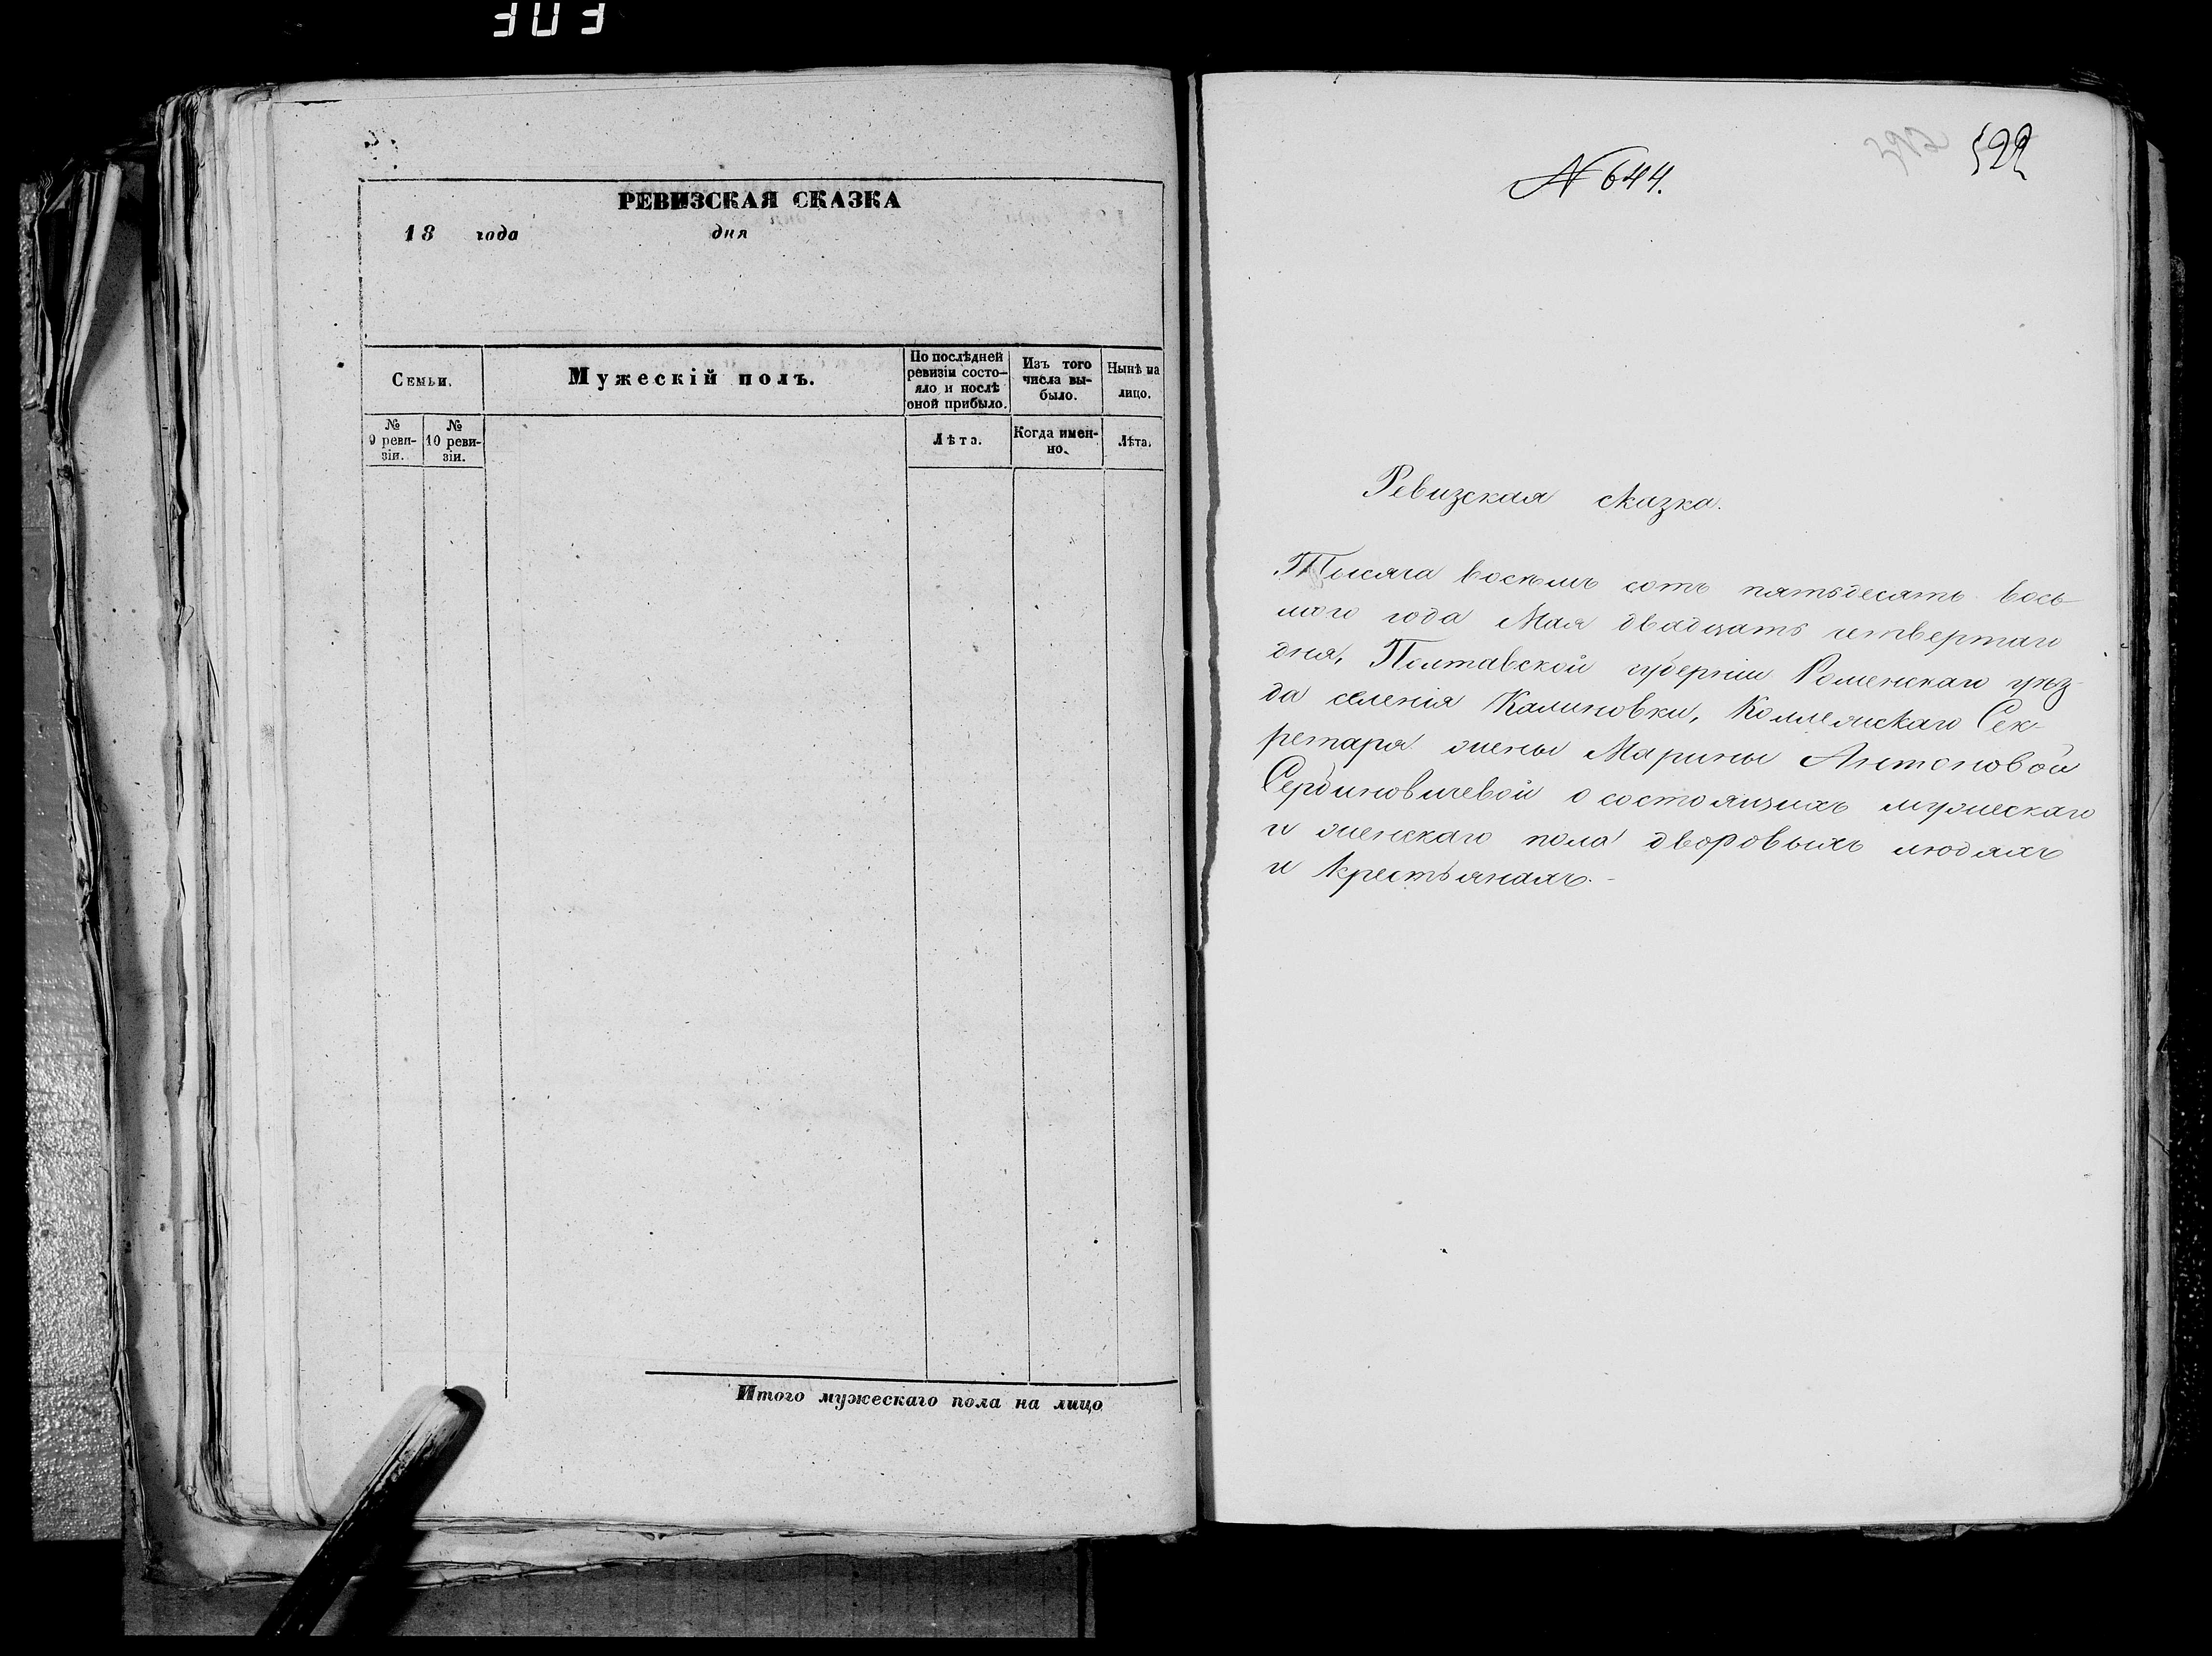 РЕВИЗСКАЯ СКАЗКА
18 года дня
Семьи.
Мужескій полъ.
По послѣдней
ревизіи состо-
яло и послѣ
оной прибыло.
Изъ того
числа вы-
было.
Нынѣ на
лицо.
№
9 реви-
зіи.
№
10 реви-
зіи.
Лѣта.
Когда имен-
но.
Лѣта.
Итого мужескаго пола на лицо
522
№ 644.
Ревизская сказка.
Тысяча восемь сотъ пятьдесятъ вось-
маго года Мая двадцать четвертаго
дня, Полтавской губерніи Роменскаго уѣз-
да селенія Калиновки, Коллежскаго Сек-
ретаря жены Марины Антоновой
Сердиновичевой о состоящихъ мужескаго
и женскаго пола дворовыхъ людяхъ
и крестьянахъ.-